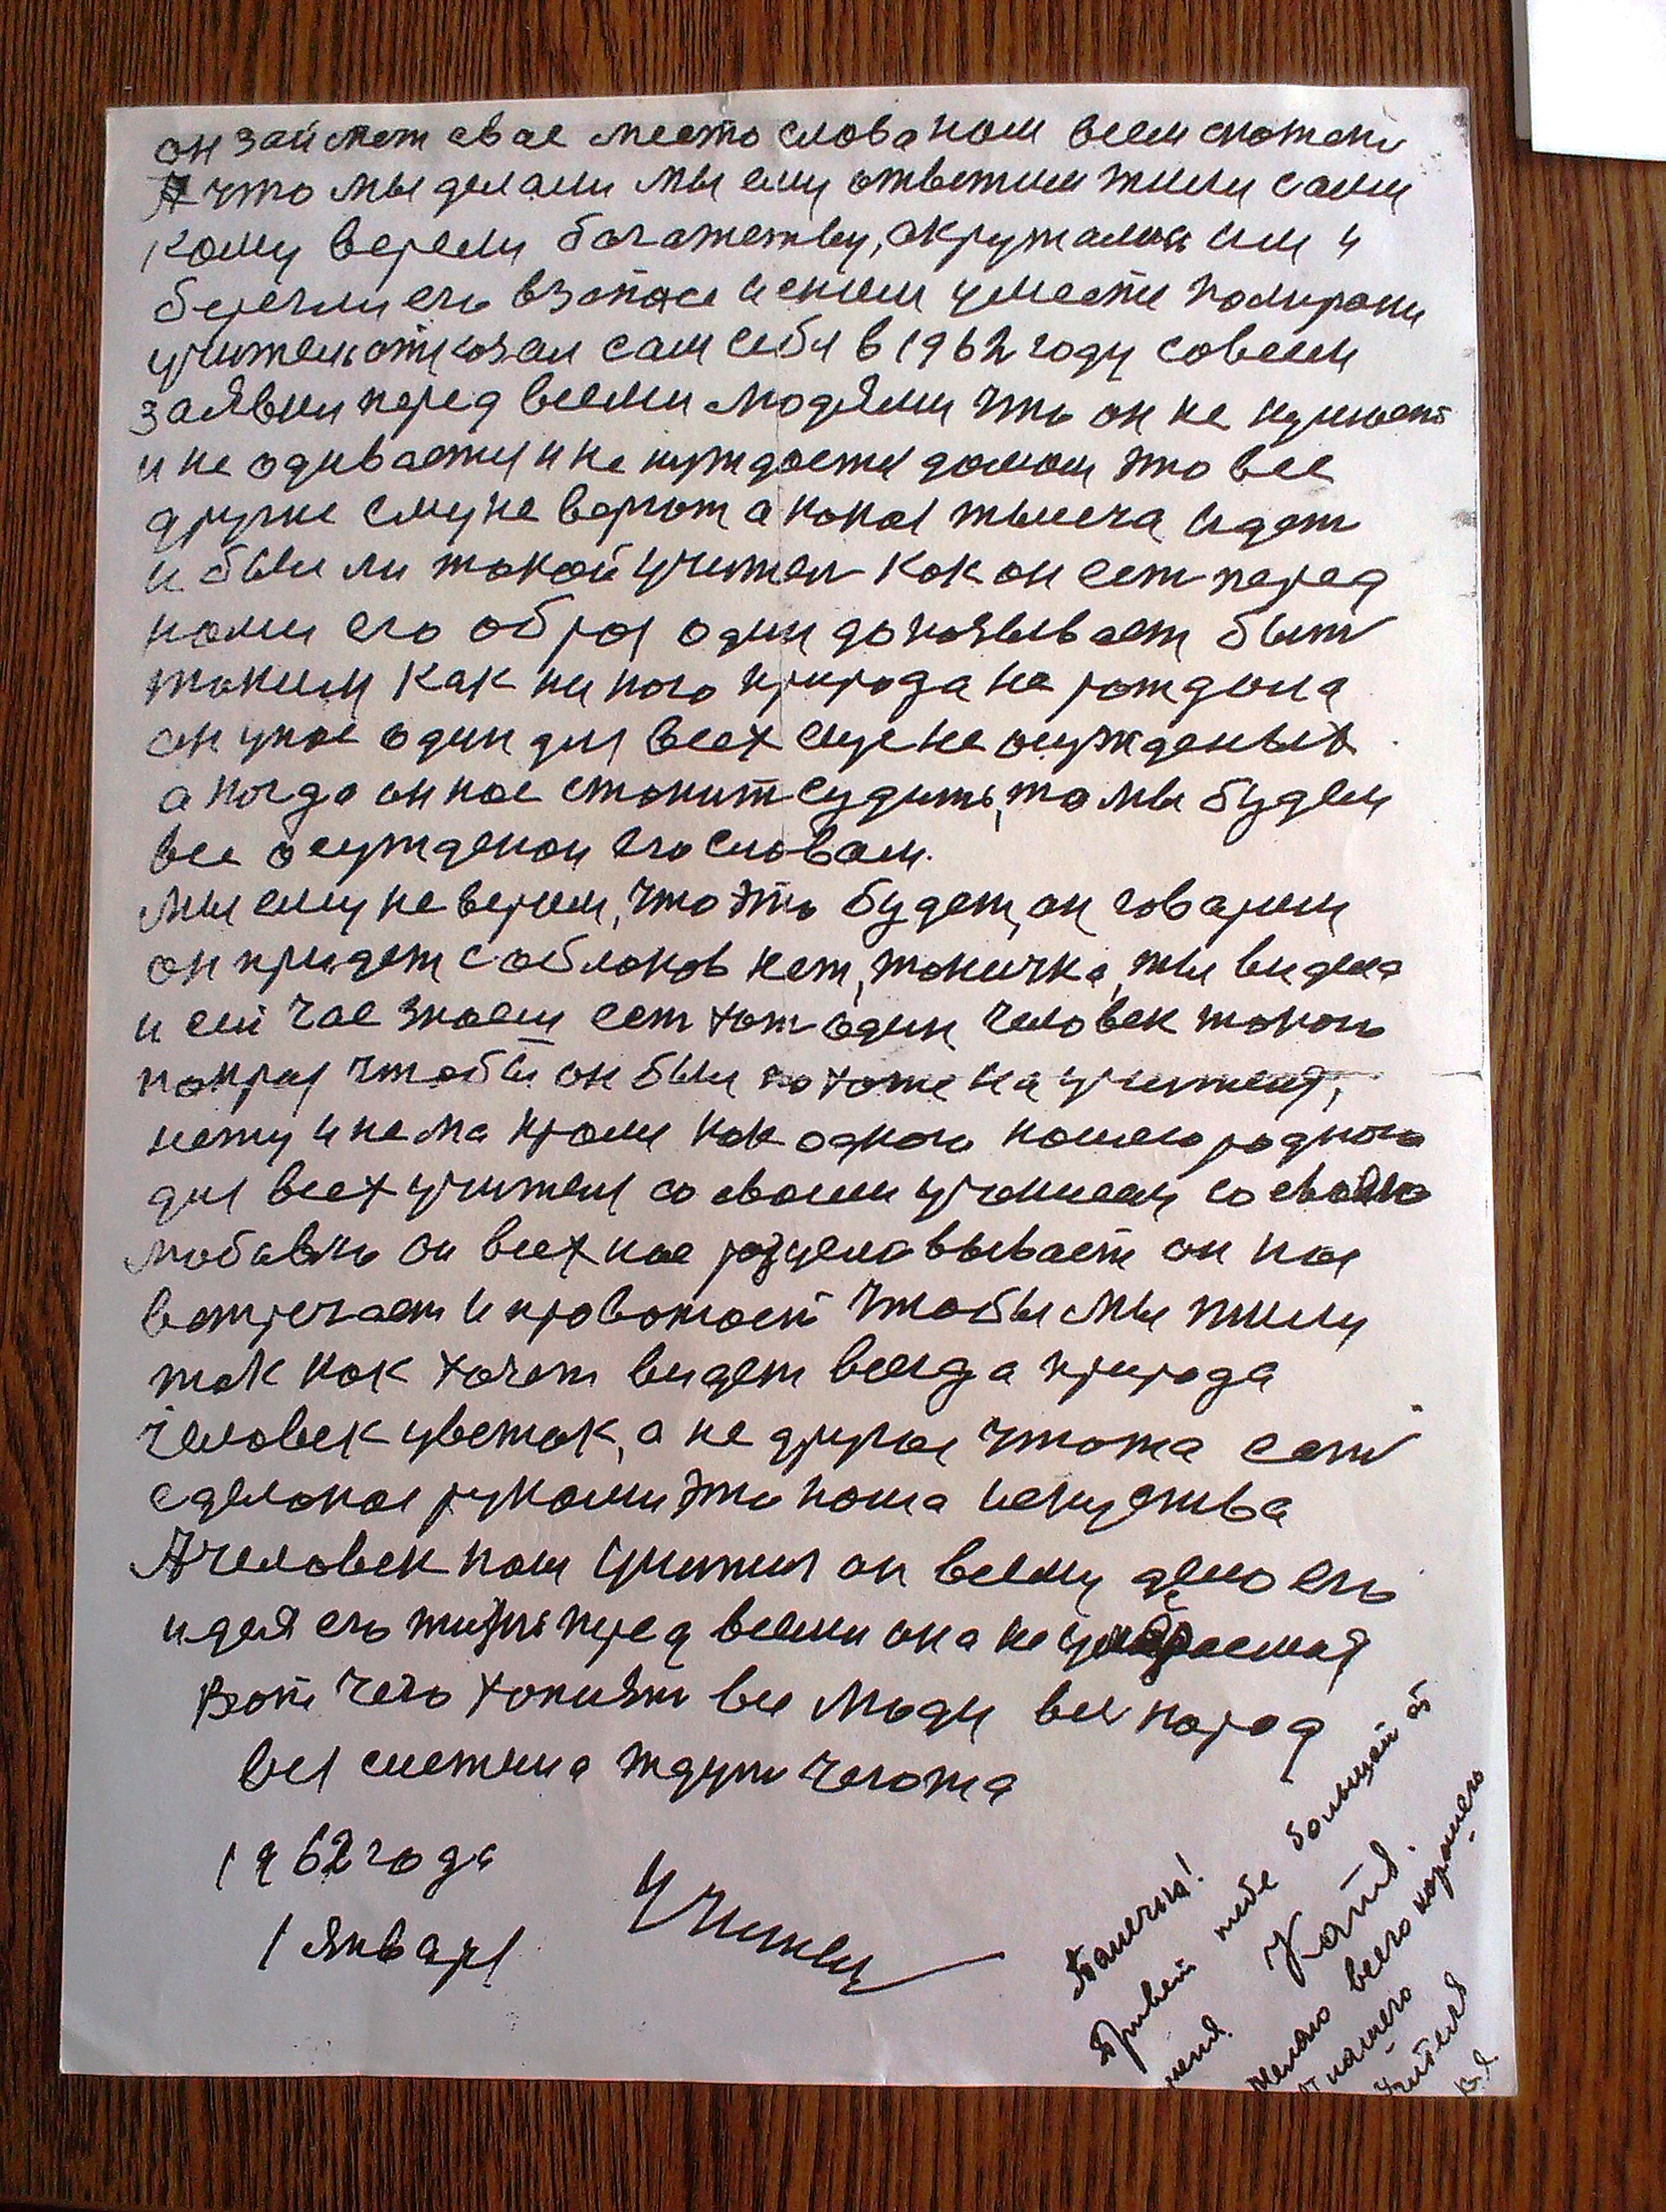 он займет свае место слова нам всем скажет
А что мы делали мы ему ответим жили сами
кому верели багажетву, акружались им и
берегли его в запасе и сним умести помирали
учитель отказал сам себя в 1962 году совсем
заявил перед всеми людями что он не кушает
и не одивается и не нуждается домом это все
другие ему не верют а какая тысеча идет
и были ли такой учител как он ест перед
нами его образ один доказывает быт
таким как ни кого природа на рождала
он у нас один для всех еще не осужденых
а когда он нас станит судить, то мы будем
все осужденаи его словам.
мы ему не верим, что это будет, он говарит
он придет с облаков нет, таничка, ты видела
и сей час знаем ест хот один человек такого
покрая чтобы он был похоже на учителя,
нету и нема кроми как одного нашего родного
для всех учителя со своим учением со своею
любавю он всех нас розцеловывает он нас
встречает и провожает чтобы мы жили
так как хочет видет всегда природа
человек цветок, а не другое чтота ест
сделоное рукоми это наша искуства
А человек наш учител он всему дело его
идея его жизнь перед всеми она не умераемая
Вот чего хотият все люди весь народ
вся система ждут чегота
1962 года
1 Января
Учитель
Танечька!
Привет тебе большой от
меня Катя.
Желаю всего хорошего
от нашего
Учителя